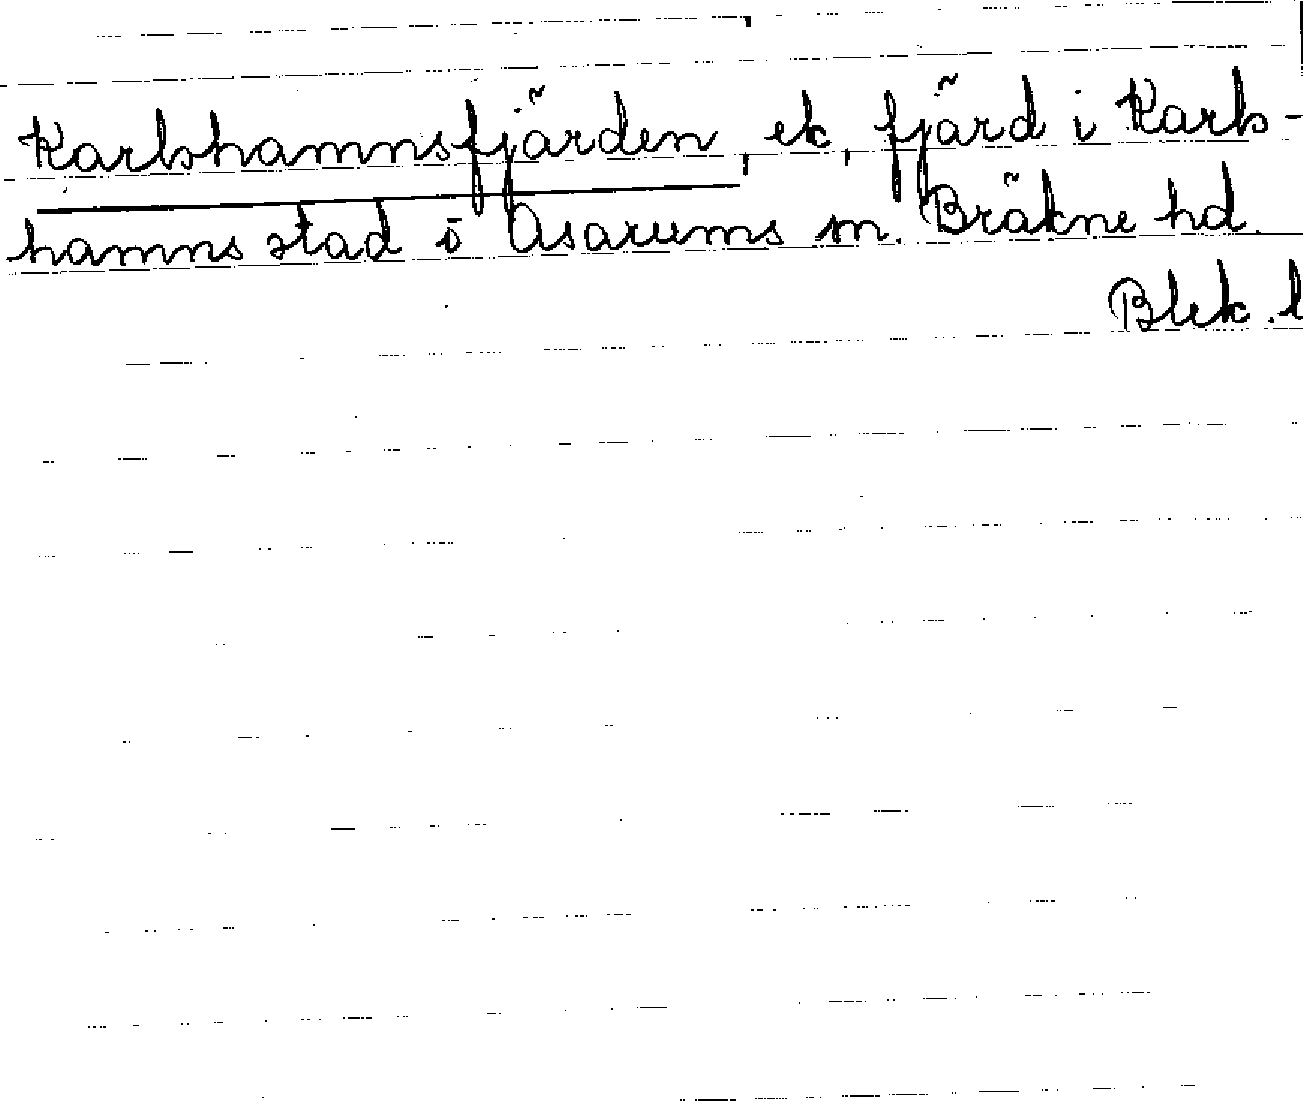 Karlshamnsfjärden, ek, fjärd i Karls-
hamns stad o Asarums sn. Bräkne hd.
Blek. l